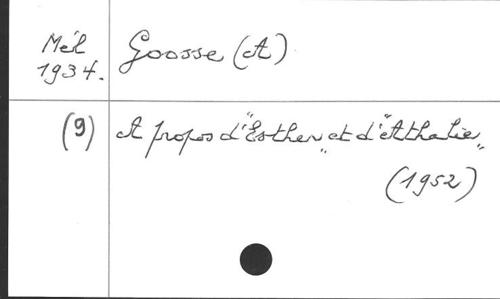 Mél Goosse (A)
1934.
(9) A propos d'"Esther" et d'"Athalie"
(1952)